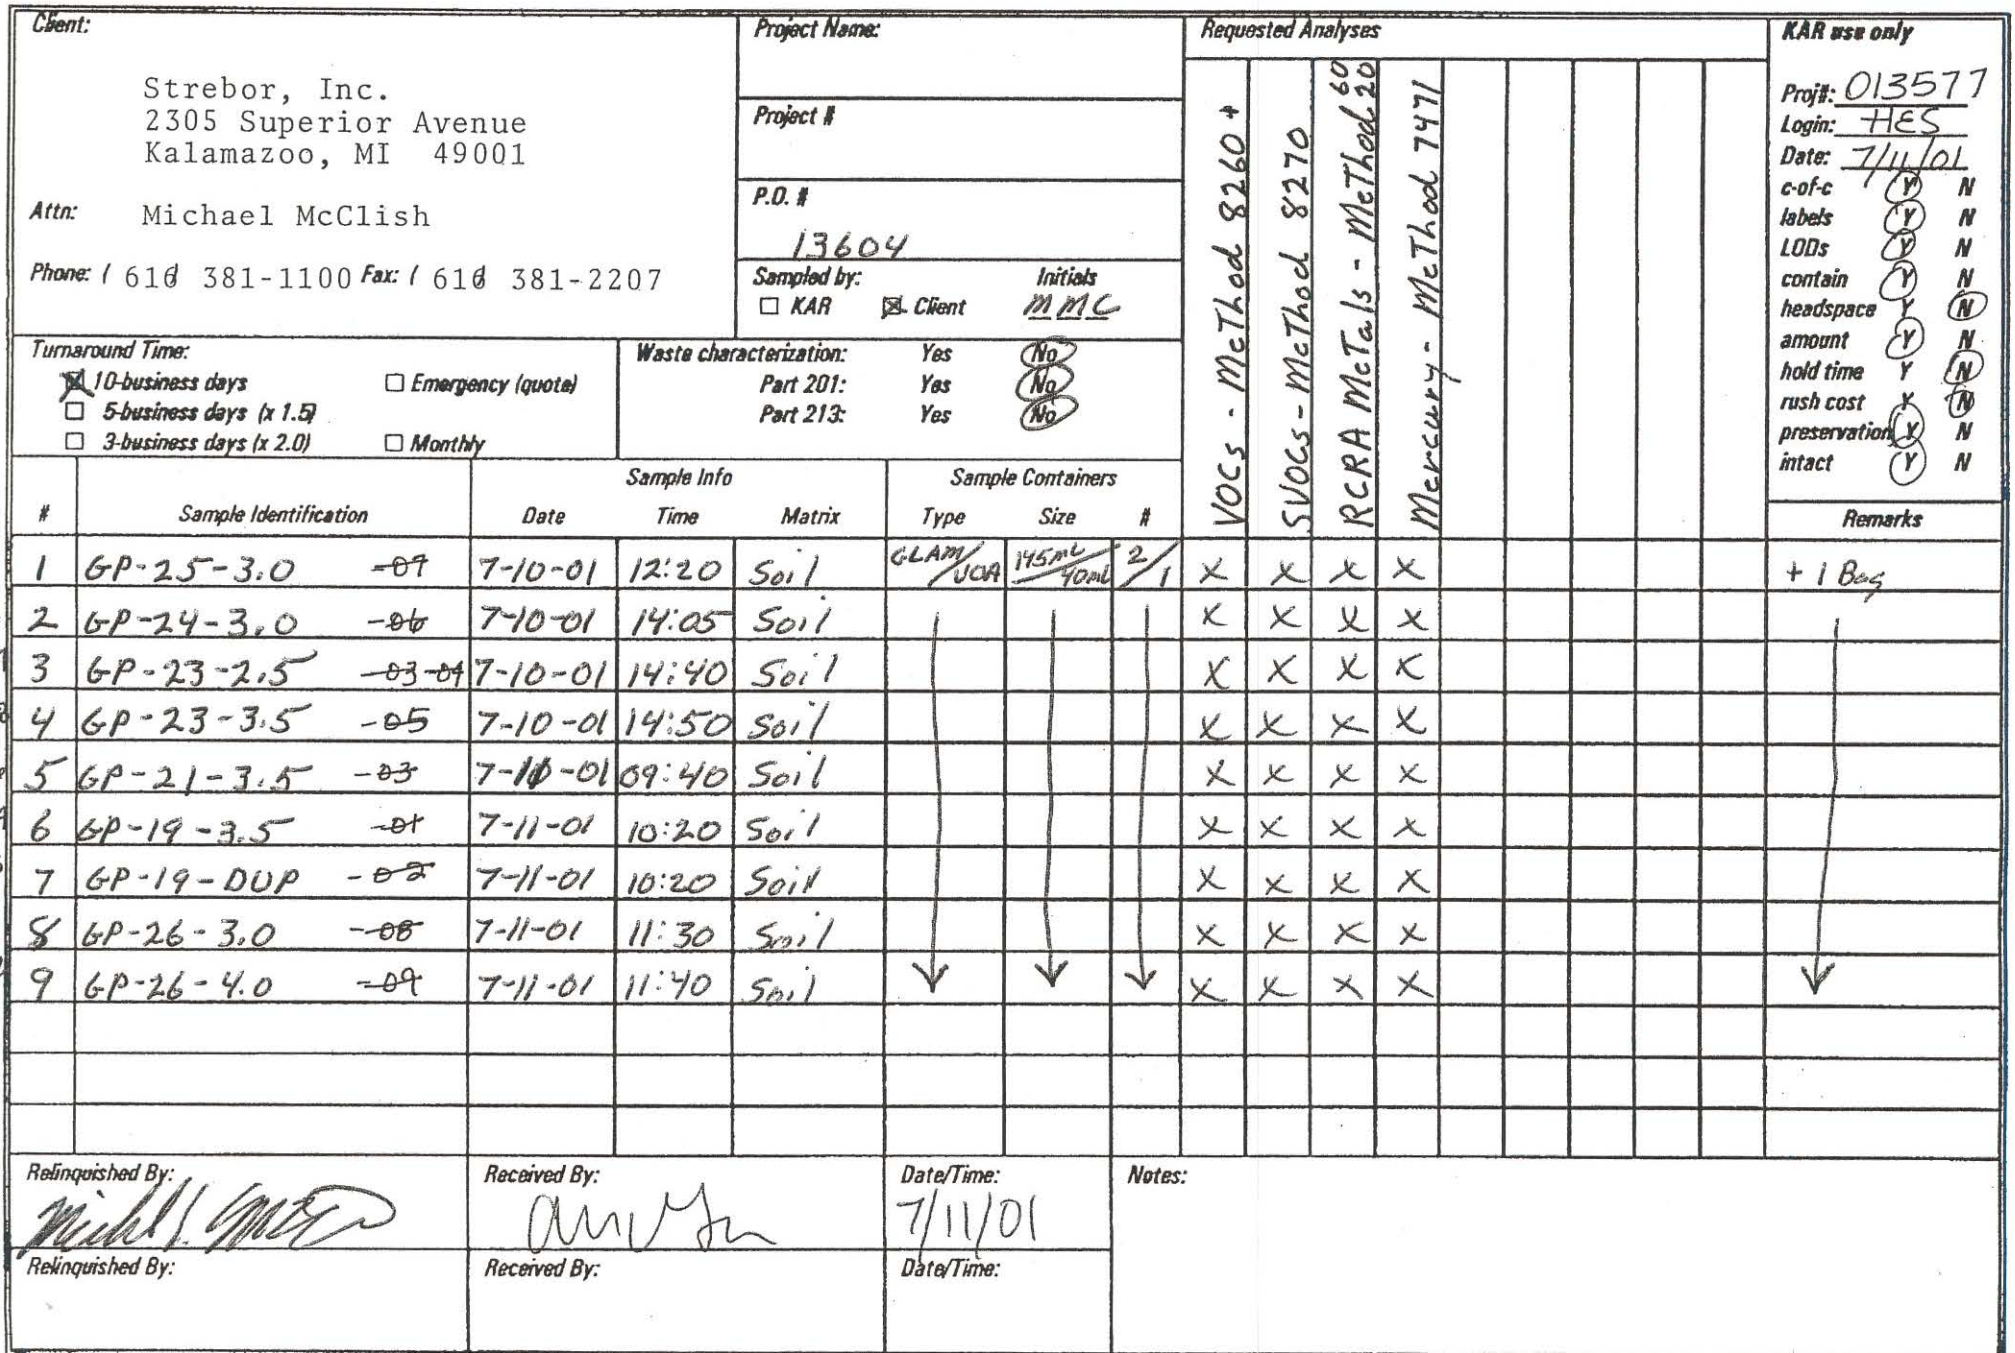 Client:
Strebor, Inc.
2305 Superior Avenue
Kalamazoo, MI 49001
Attn: Michael McClish
Phone: ( 616) 381-1100 Fax: ( 616) 381-2207
Project Name:
Project #
P.O. #
13604
Sampled by: Initials
☐ KAR ☒ Client MMC
Turnaround Time:
☒ 10-business days ☐ Emergency (quote)
☐ 5-business days (x 1.5)
☐ 3-business days (x 2.0) ☐ Monthly
Waste characterization: Yes No
Part 201: Yes No
Part 213: Yes No
Requested Analyses
VOCs - Method 8260 +
SVOCs - Method 8270
RCRA Metals - Method 60 20
Mercury - Method 7471
KAR use only
Proj#: 013577
Login: HES
Date: 7/11/01
c-of-c Y N
labels Y N
LODs Y N
contain Y N
headspace Y N
amount Y N
hold time Y N
rush cost Y N
preservation Y N
intact Y N
Sample Info Sample Containers
# Sample Identification Date Time Matrix Type Size # Remarks
1 GP-25-3.0 -07 7-10-01 12:20 Soil GLAM/VOA 145mL/40mL 2/1 X X X X + 1 Bag
2 GP-24-3.0 -06 7-10-01 14:05 Soil X X X X
3 GP-23-2.5 -03 -04 7-10-01 14:40 Soil X X X X
4 GP-23-3.5 -05 7-10-01 14:50 Soil X X X X
5 GP-21-3.5 -03 7-11-01 09:40 Soil X X X X
6 GP-19-3.5 -01 7-11-01 10:20 Soil X X X X
7 GP-19-DUP -02 7-11-01 10:20 Soil X X X X
8 GP-26-3.0 -08 7-11-01 11:30 Soil X X X X
9 GP-26-4.0 -09 7-11-01 11:40 Soil X X X X
Relinquished By: Received By: Date/Time: Notes:
7/11/01
Relinquished By: Received By: Date/Time: